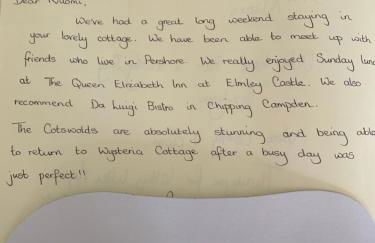 Dear Naomi,
We've had a great long weekend staying in
your lovely cottage. We have been able to meet up with
friends who live in Pershore. We really enjoyed Sunday
at The Queen Elizabeth Inn at Elmley Castle. We also
recommend Da Luigi Bistro in Chipping Campden.
The Cotswolds are absolutely stunning and being able
to return to Wysteria Cottage after a busy day was
just perfect!!